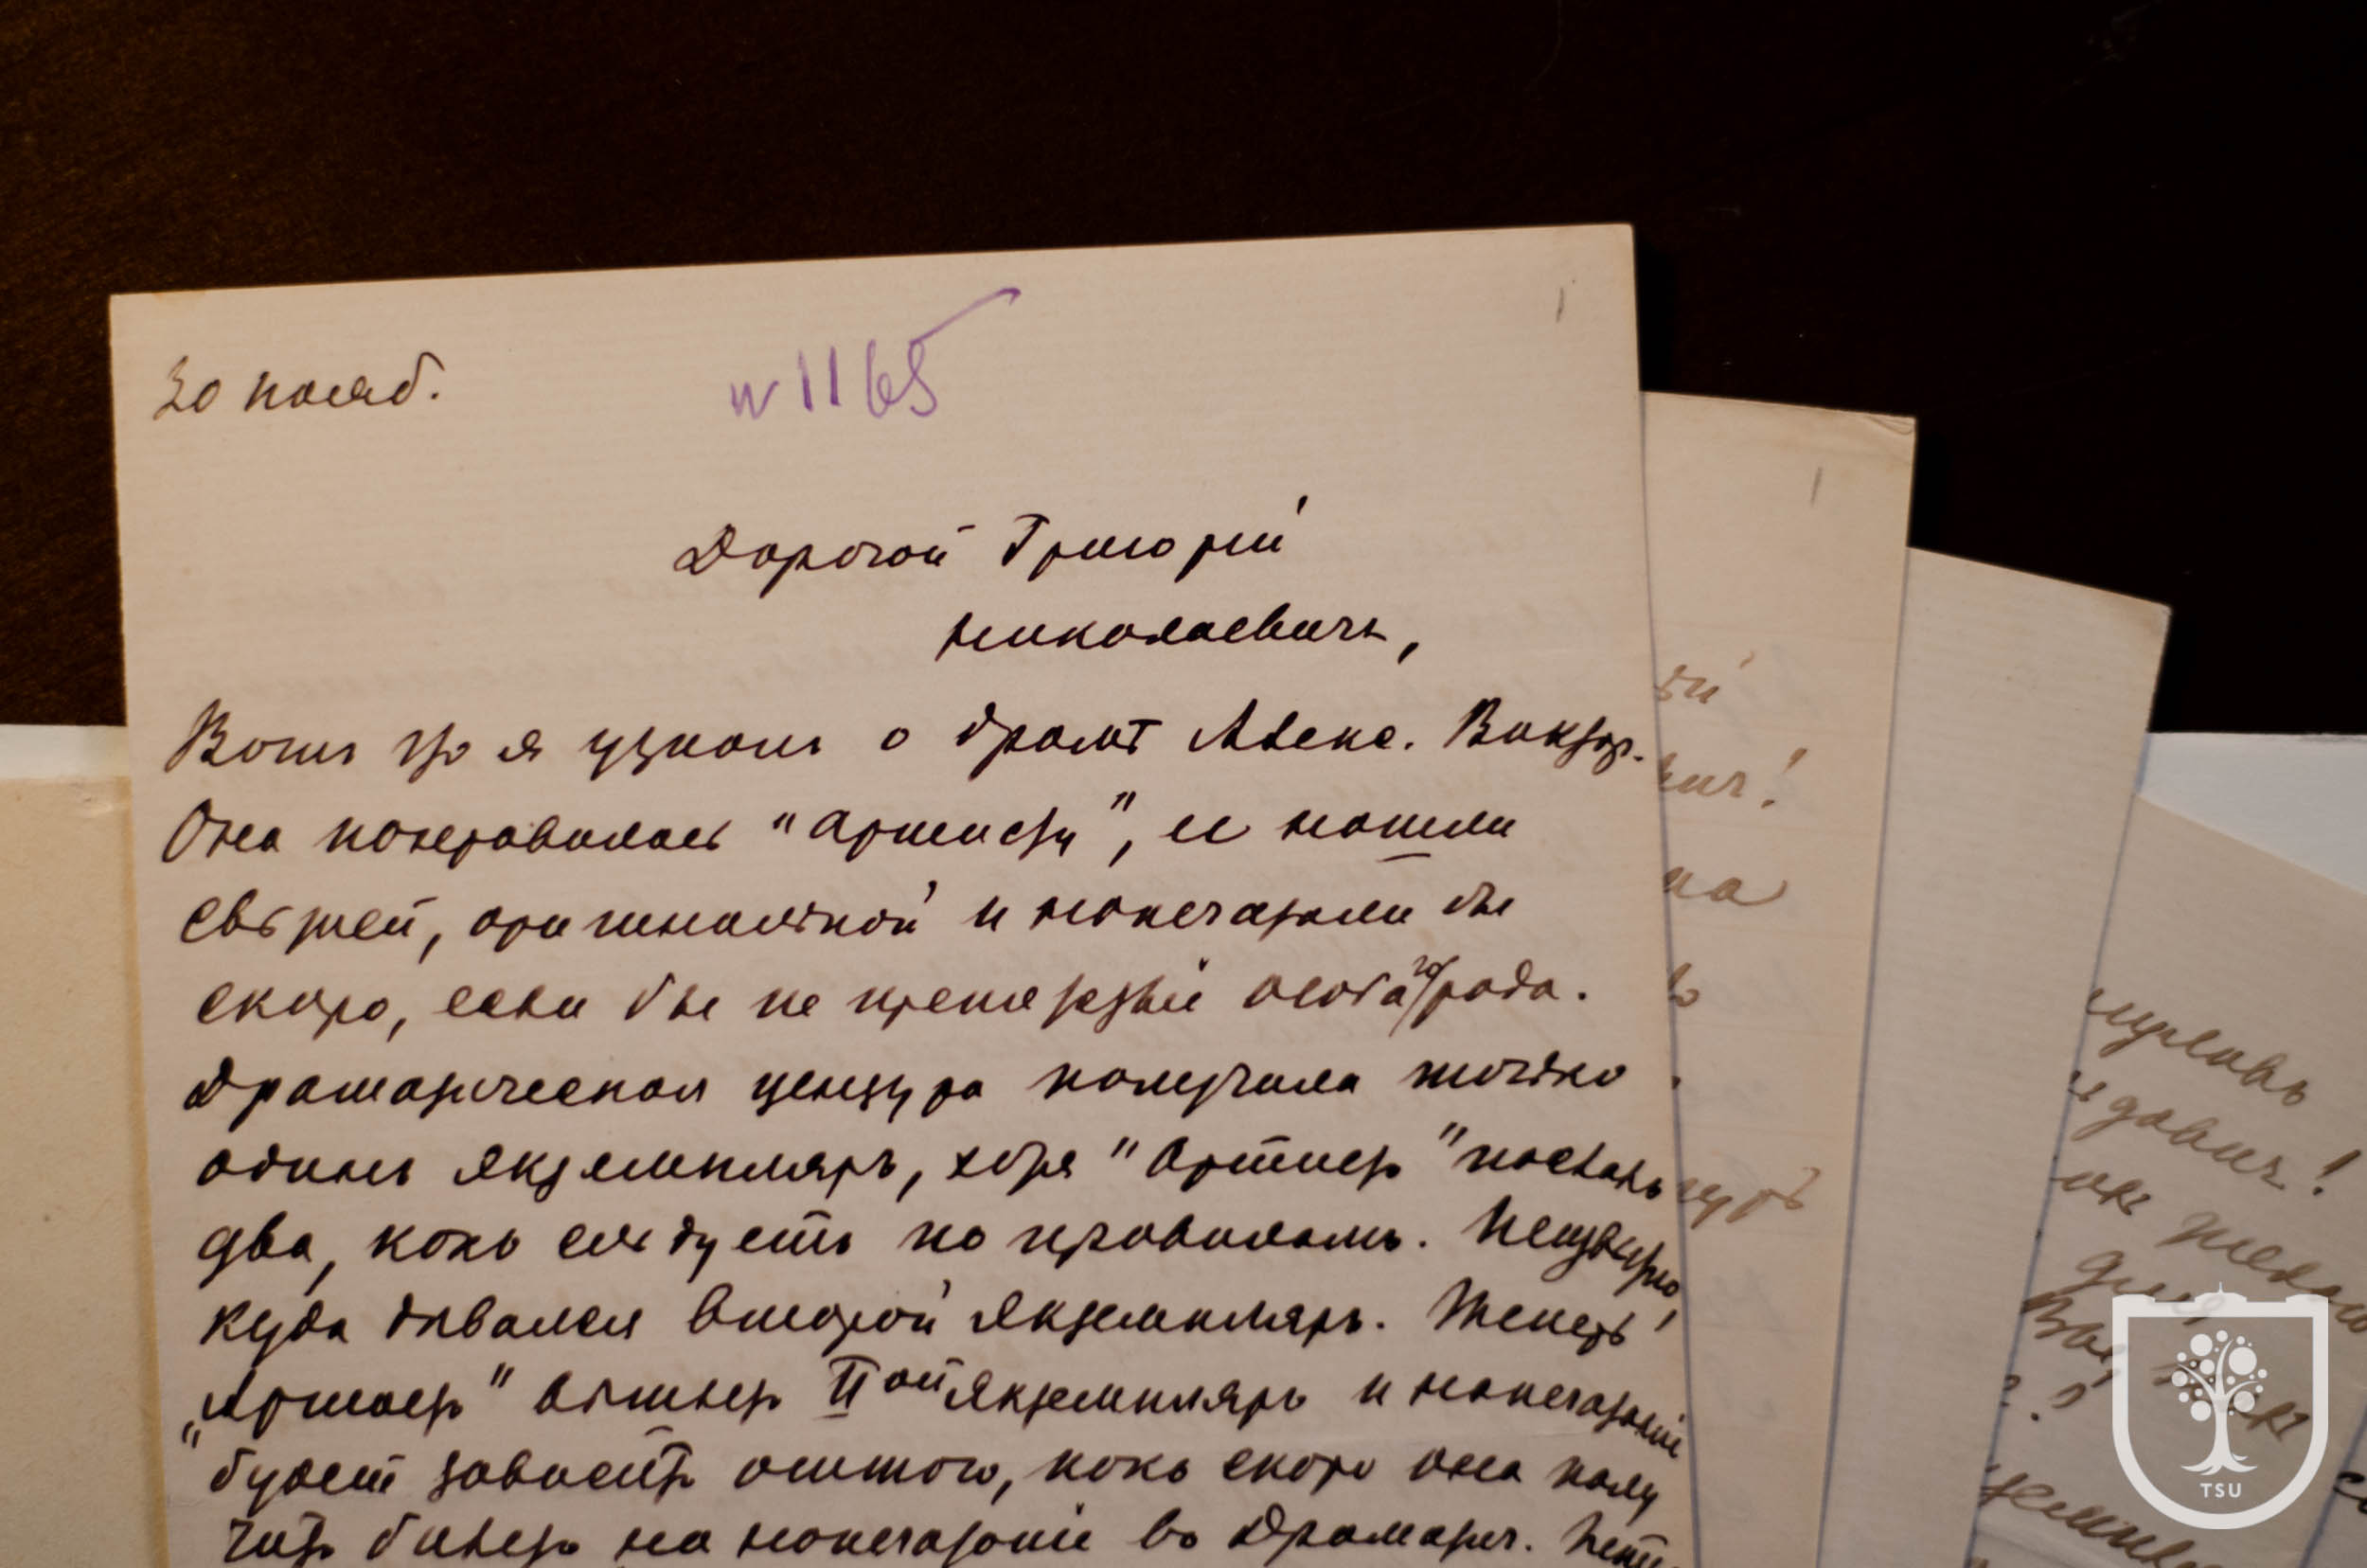 30 нояб.
N 1165
1
Дорогой Григорій
Николаевичъ,
Вотъ что я узналъ о драмѣ Алекс. Виктор.
Она понравилась "Артисту", ее нашли
свѣжей, оригинальной и напечатали бы
скоро, если бы не претерзы особаго рода.
Драматическая цензура получила только
одинъ экземпляръ, хотя "Артистъ" послалъ
два, какъ слѣдуетъ по правиламъ. Неизвѣстно,
куда дѣвался второй экземпляръ. Теперь
„Артистъ" II ой экземпляръ и напечатаніе
будетъ зависѣть оттого, какъ скоро она полу
читъ билетъ на напечатаніе въ Драматич.
1
ій
вичъ!
на
ъ
!
желаю
Вы
TSU